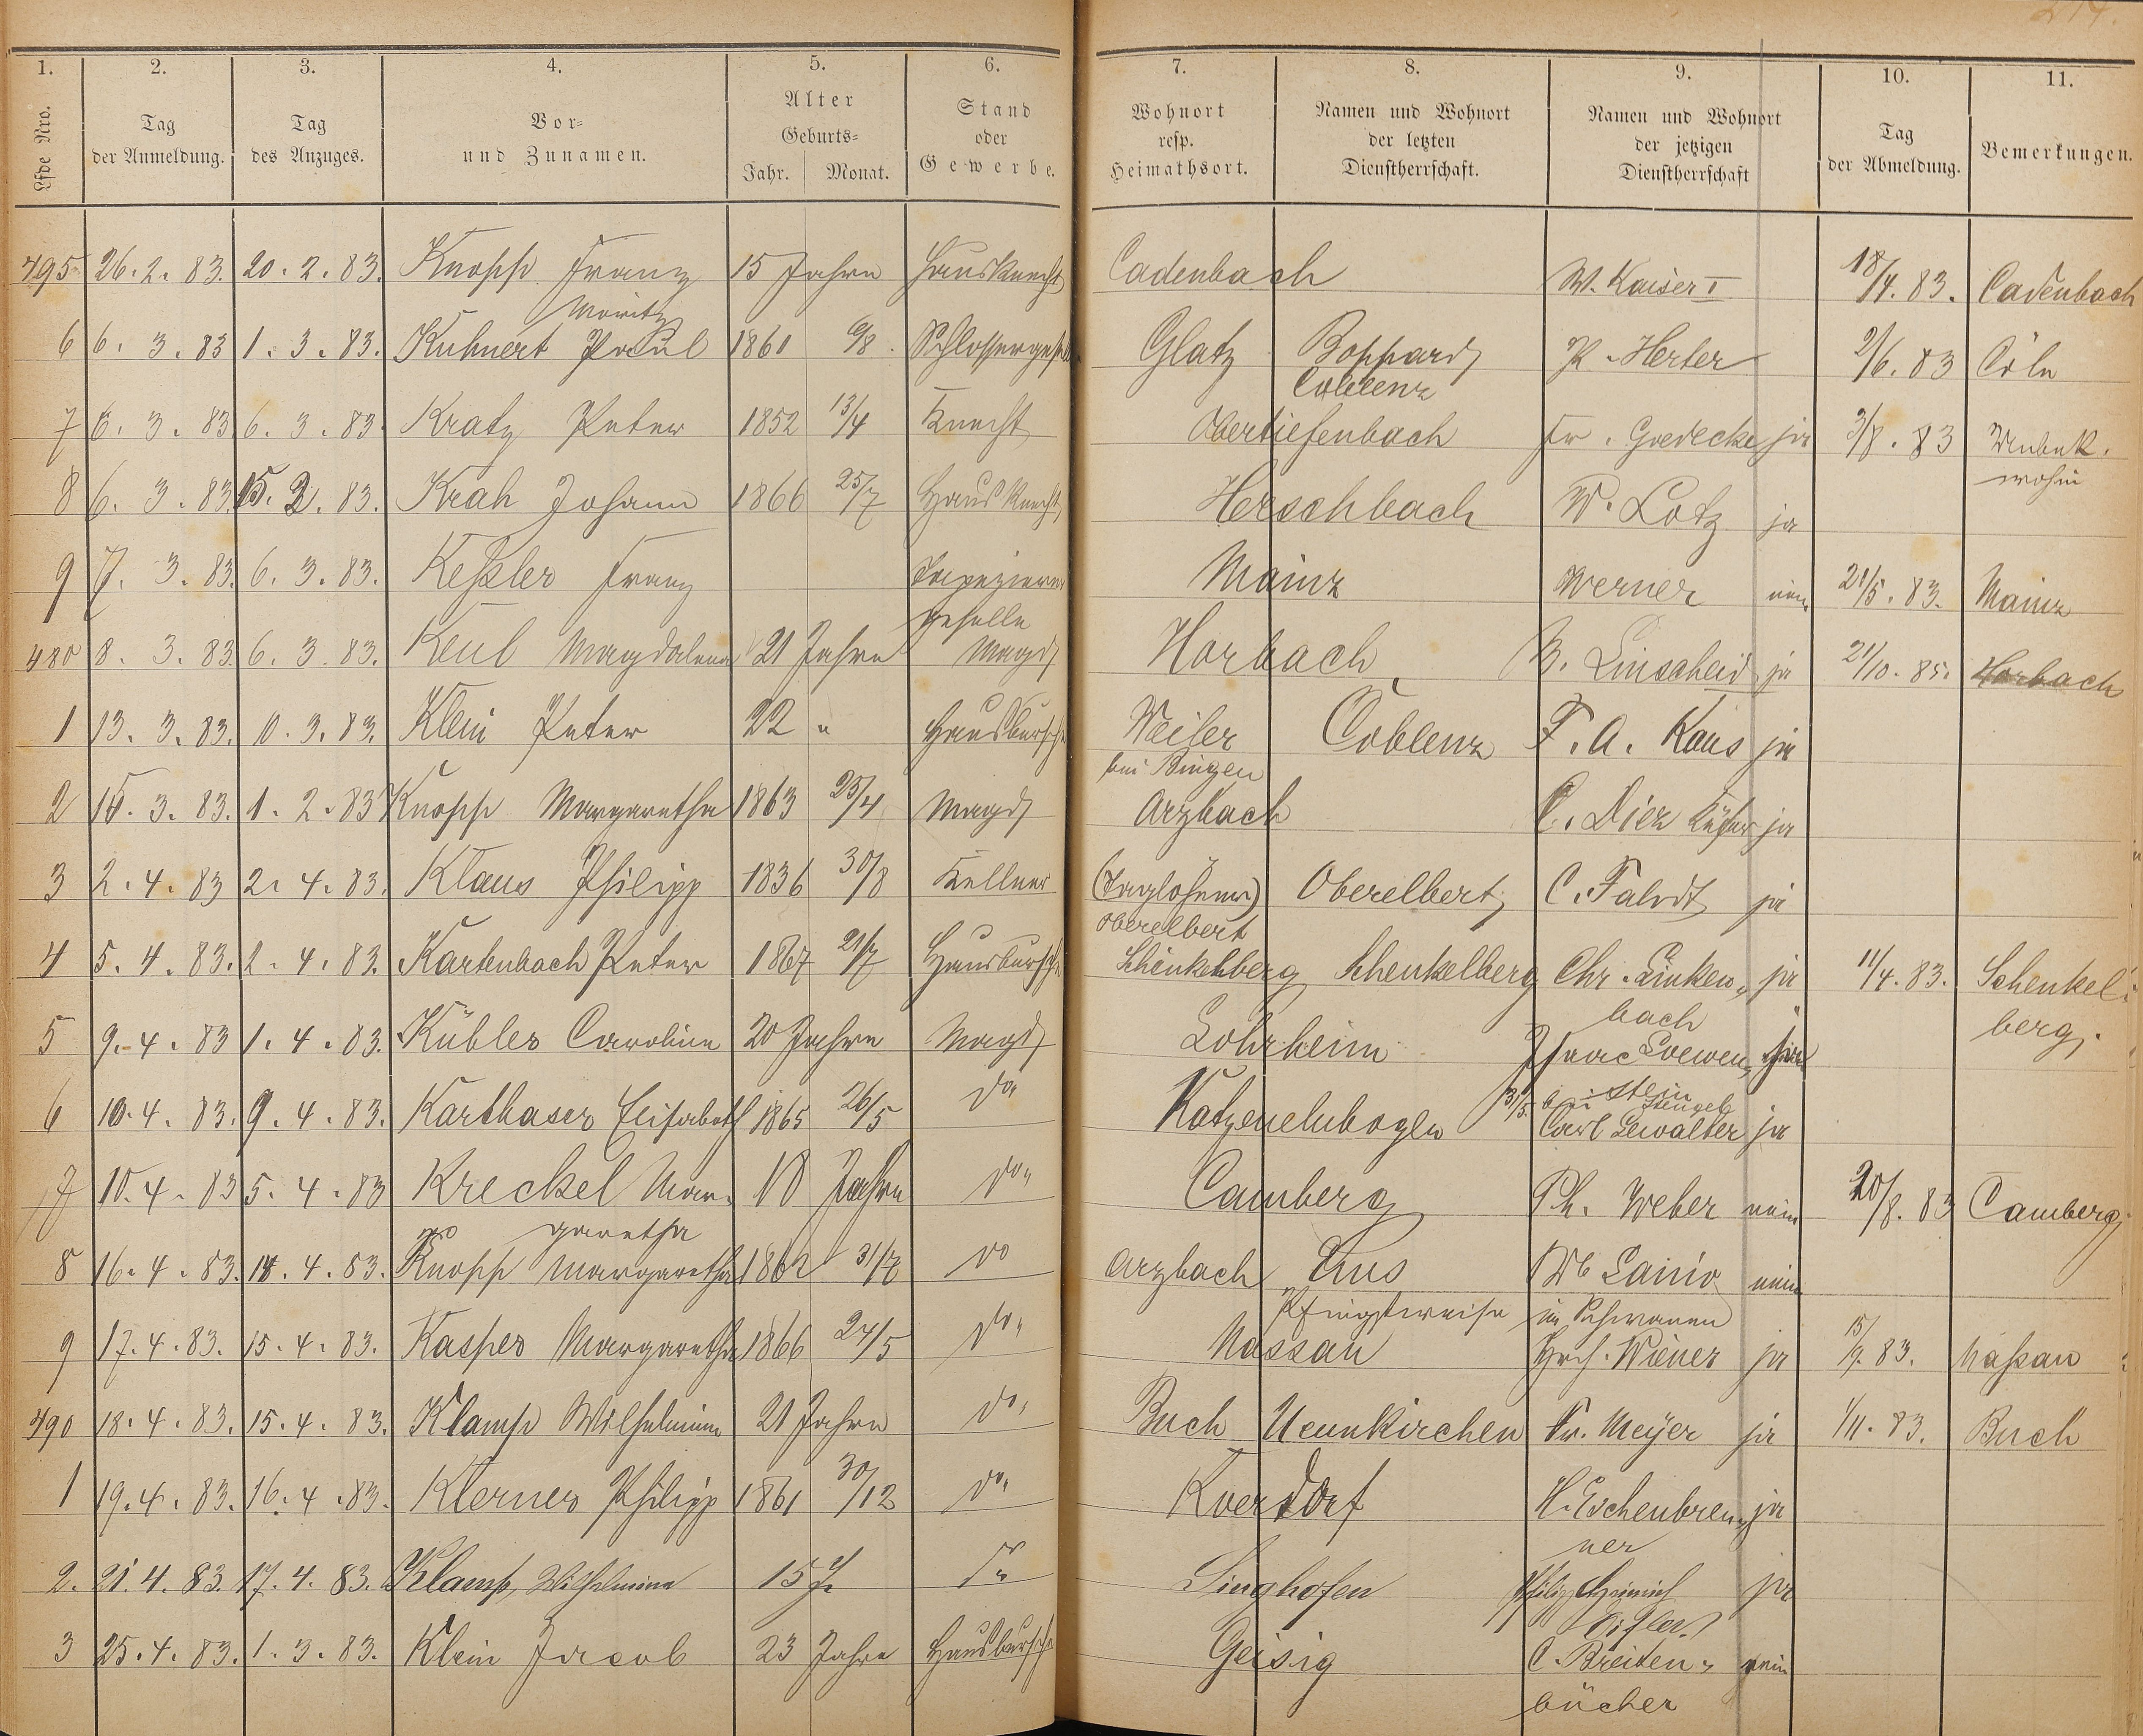 214.
1. 2. 3. 4. 5. 6. 7. 8. 9. 10. 11.
Lfde Nro. Tag der Anmeldung. Tag des Anzuges. Vor- und Zunamen. Alter Geburts- Jahr. Monat. Stand oder Gewerbe. Wohnort resp. Heimathsort. Namen und Wohnort der letzten Dienstherrschaft. Namen und Wohnort der jetzigen Dienstherrschaft Tag der Abmeldung. Bemerkungen.
495 26. 2. 83. 20. 2. 83. Knopp Franz 15 Jahre Hausknecht Cadenbach W. Kaiser I 18/4. 83. Cadenbach
Moritz
6 6. 3. 83 1. 3. 83. Kuhnert Paul 1861 6/8. Schlossergesell Glatz Boppard K. Herber 2/6. 83 Cöln
Coblenz
7 6. 3. 83 6. 3. 83. Kratz Peter 1852 13/4 Knecht Obertiefenbach Fr. Goedecke ja 3/8. 83 Unbek.
wohin
8 6. 3. 83 15. 2. 83. Krah Johann 1866 25/7 Hausknecht Herschbach W. Lotz ja
9 7. 3. 83. 6. 3. 83. Keßler Franz Tapezierer Mainz Werner nein 21/5. 83. Mainz
geselle
480 8. 3. 83. 6. 3. 83. Keul Magdalena 21 Jahre Magd Horbach B. Linscheid ja 21/10. 85. Horbach
1 13. 3. 83. 10. 3. 83. Klein Peter 22 " Hausbursche Weiler Coblenz F. A. Kaus ja
bei Bingen
2 15. 3. 83. 1. 2. 83 Knopp Margaretha 1863 23/4 Magd Arzbach C. Diez Küfer ja
3 2. 4. 83 2. 4. 83. Klaus Philipp 1836 30/8 Kellner (Taglöhner) Oberelbert C. Fahdt ja
Oberelbert
4 5. 4. 83. 2. 4. 83. Kartenbach Peter 1867 21/7 Hausbursche Schenkelberg Schenkelberg Chr. Linken- ja 11/4. 83. Schenkel-
bach berg.
5 9. 4. 83 1. 4. 83. Kübler Caroline 20 Jahre Magd Lohrheim Isaac Loewen- ja
stein
6 10. 4. 83. 9. 4. 83. Karthaser Elisabeth 1865 26/5 do Katzenelnbogen 31/5. bei Stengel
Carl Lewalter ja
7 10. 4. 83 5. 4. 83 Kreckel Mar- 18 Jahre do Camberg Ph. Weber nein 20/8. 83 Camberg.
garetha
8 16. 4. 83. 14. 4. 83. Knopp Margaretha 1862 31/7 do Arzbach Ems Wb Lainio nein
Pfingstweise im Schwanen
9 17. 4. 83. 15. 4. 83. Kasper Margaretha 1866 24/5 do Nassau Hrch. Wiener ja 15/9. 83. Naßau
490 18. 4. 83. 15. 4. 83. Klamp Wilhelmine 21 Jahre do Buch Neunkirchen Fr. Meyer ja 1/11. 83. Buch
1 19. 4. 83. 16. 4. 83. Klerner Philipp 1861 30/12 do Koerdorf H. Eschenbren- ja
ner
2. 21. 4. 83. 17. 4. 83. Klamp, Wilhelmine 15 J. do Singhofen Philipp Heinrich ja
3 25. 4. 83. 1. 3. 83. Klein Jacob 23 Jahre Hausbursche Geisig C. Breiden- nein
bücher